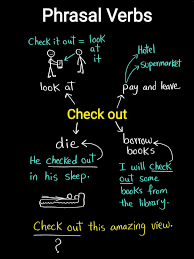 Phrasal Verbs
Check it out = look
at
it
Hotel
Supermarket
look at
pay and leave
Check out
die
borrow
books
He checked out
in his sleep.
I will check
out some
books from
the library.
Check out this amazing view.
?